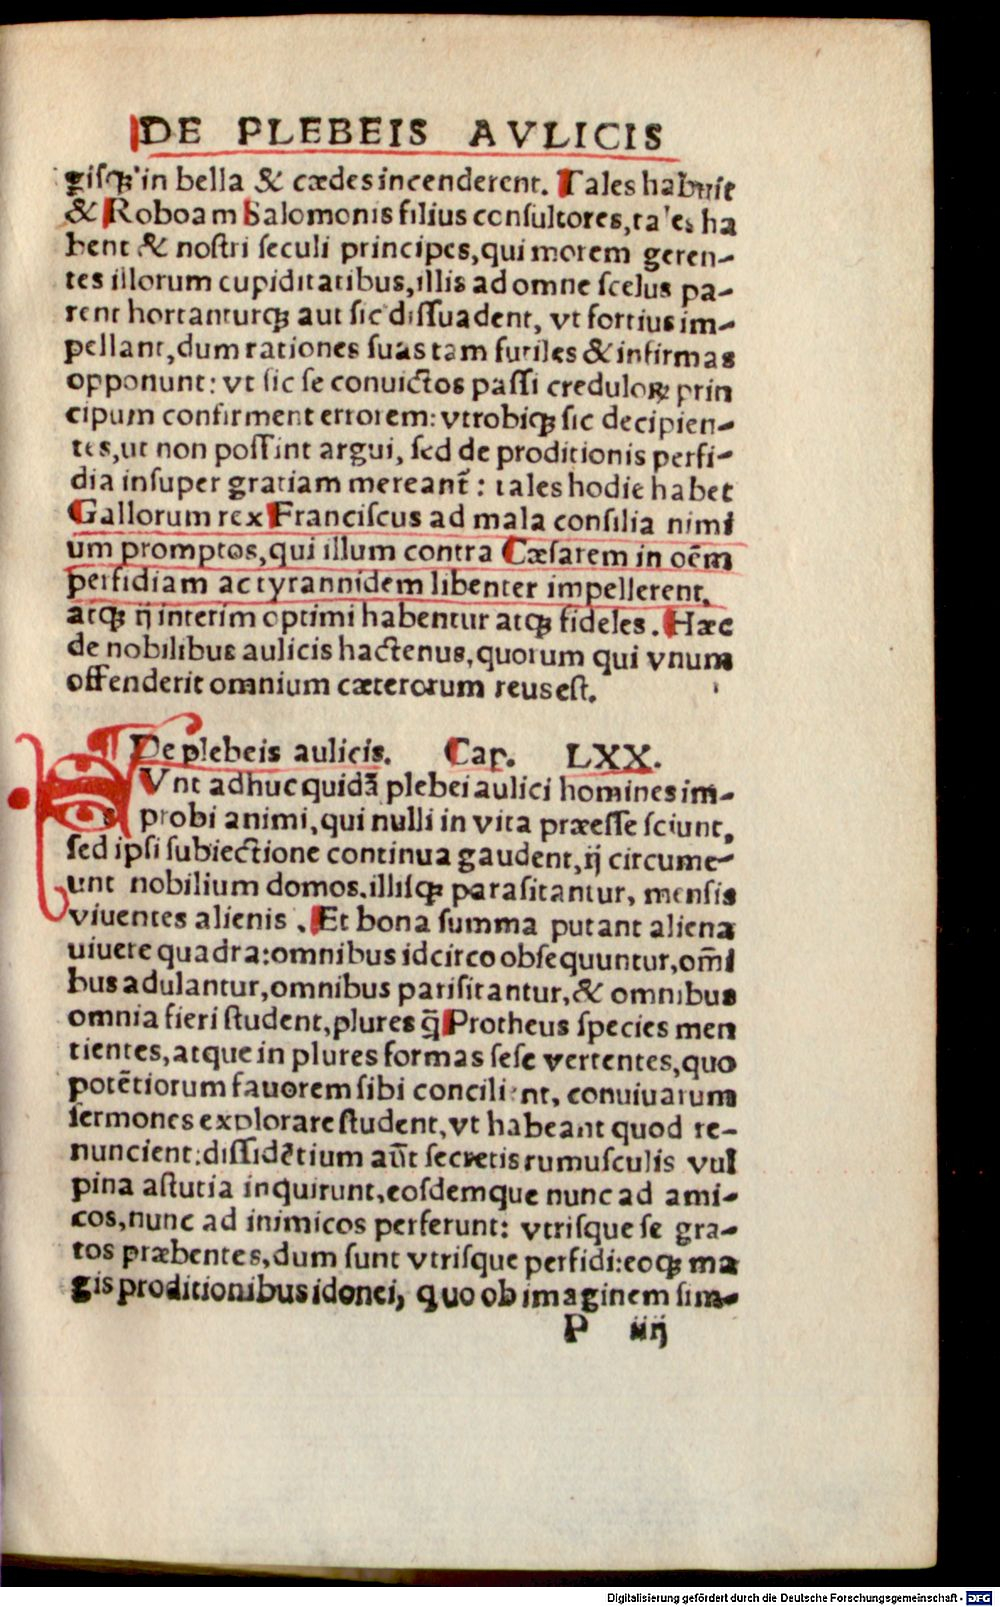 DE PLEBEIS AVLICIS
giſqꝫ in bella & cædes incenderent. Tales habuit
& Roboam Salomonis filius conſultores, tales ha
bent & noſtri ſeculi principes, qui morem geren-
tes illorum cupiditatibus, illis ad omne ſcelus pa-
rent hortanturqꝫ aut ſic diſſuadent, vt fortius im-
pellant, dum rationes ſuas tam futiles & infirmas
opponunt: vt ſic ſe convictos paſſi creduloꝝ prin
cipum confirment errorem: vtrobiqꝫ ſic decipien-
tes, ut non poſſint argui, ſed de proditionis perfi-
dia inſuper gratiam mereant̃: tales hodie habet
Gallorum rex Franciſcus ad mala conſilia nimi
um promptos, qui illum contra Cæſarem in oẽm
perfidiam ac tyrannidem libenter impellerent,
atqꝫ ij interim optimi habentur atqꝫ fideles. Hæc
de nobilibus aulicis hactenus, quorum qui vnum
offenderit omnium cæterorum reus eſt.
De plebeis aulicis. Cap. LXX.
SVnt adhuc quidã plebei aulici homines im-
probi animi, qui nulli in vita præeſſe ſciunt,
ſed ipſi ſubiectione continua gaudent, ij circume-
unt nobilium domos. illiſqꝫ paraſitantur, menſis
viuentes alienis. Et bona ſumma putant aliena
uiuere quadra: omnibus idcirco obſequuntur, om̃i
bus adulantur, omnibus pariſitantur, & omnibus
omnia fieri ſtudent, plures q̃ Protheus ſpecies men
tientes, atque in plures formas ſeſe vertentes, quo
potẽtiorum fauorem ſibi concilient, conuiuarum
ſermones explorare ſtudent, vt habeant quod re-
nuncient: diſſidẽtium aũt ſecretis rumuſculis vul
pina aſtutia inquirunt, eoſdemque nunc ad ami-
cos, nunc ad inimicos perferunt: vtriſque ſe gra-
tos præbentes, dum ſunt vtriſque perfidi: eoqꝫ ma
gis proditionibus idonei, quo ob imaginem ſim-
P iiij
Digitalisierung gefördert durch die Deutsche Forschungsgemeinschaft - DFG